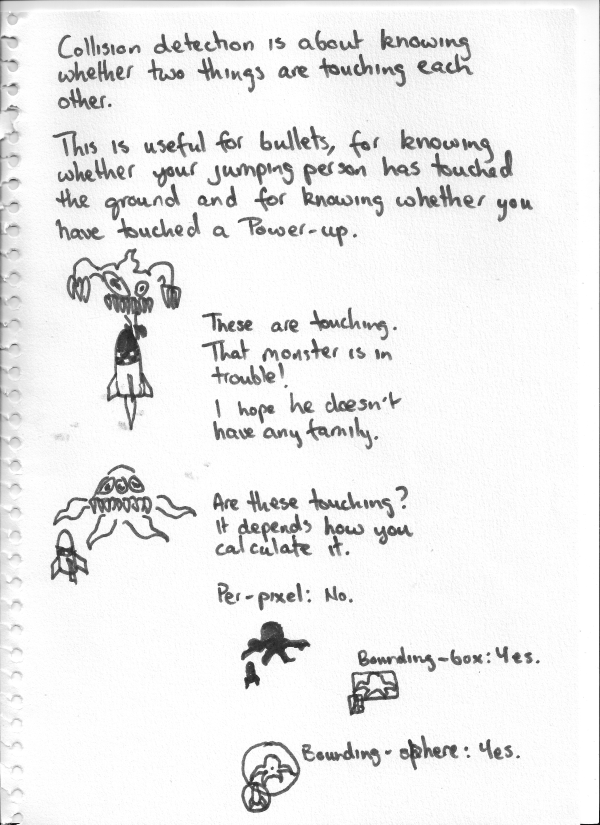 Collision detection is about knowing
whether two things are touching each
other.
This is useful for bullets, for knowing
whether your jumping person has touched
the ground and for knowing whether you
have touched a Power-up.
These are touching.
That monster is in
trouble!
I hope he doesn't
have any family.
Are these touching?
It depends how you
calculate it.
Per-pixel: No.
Bounding-box: Yes.
Bounding-sphere: Yes.